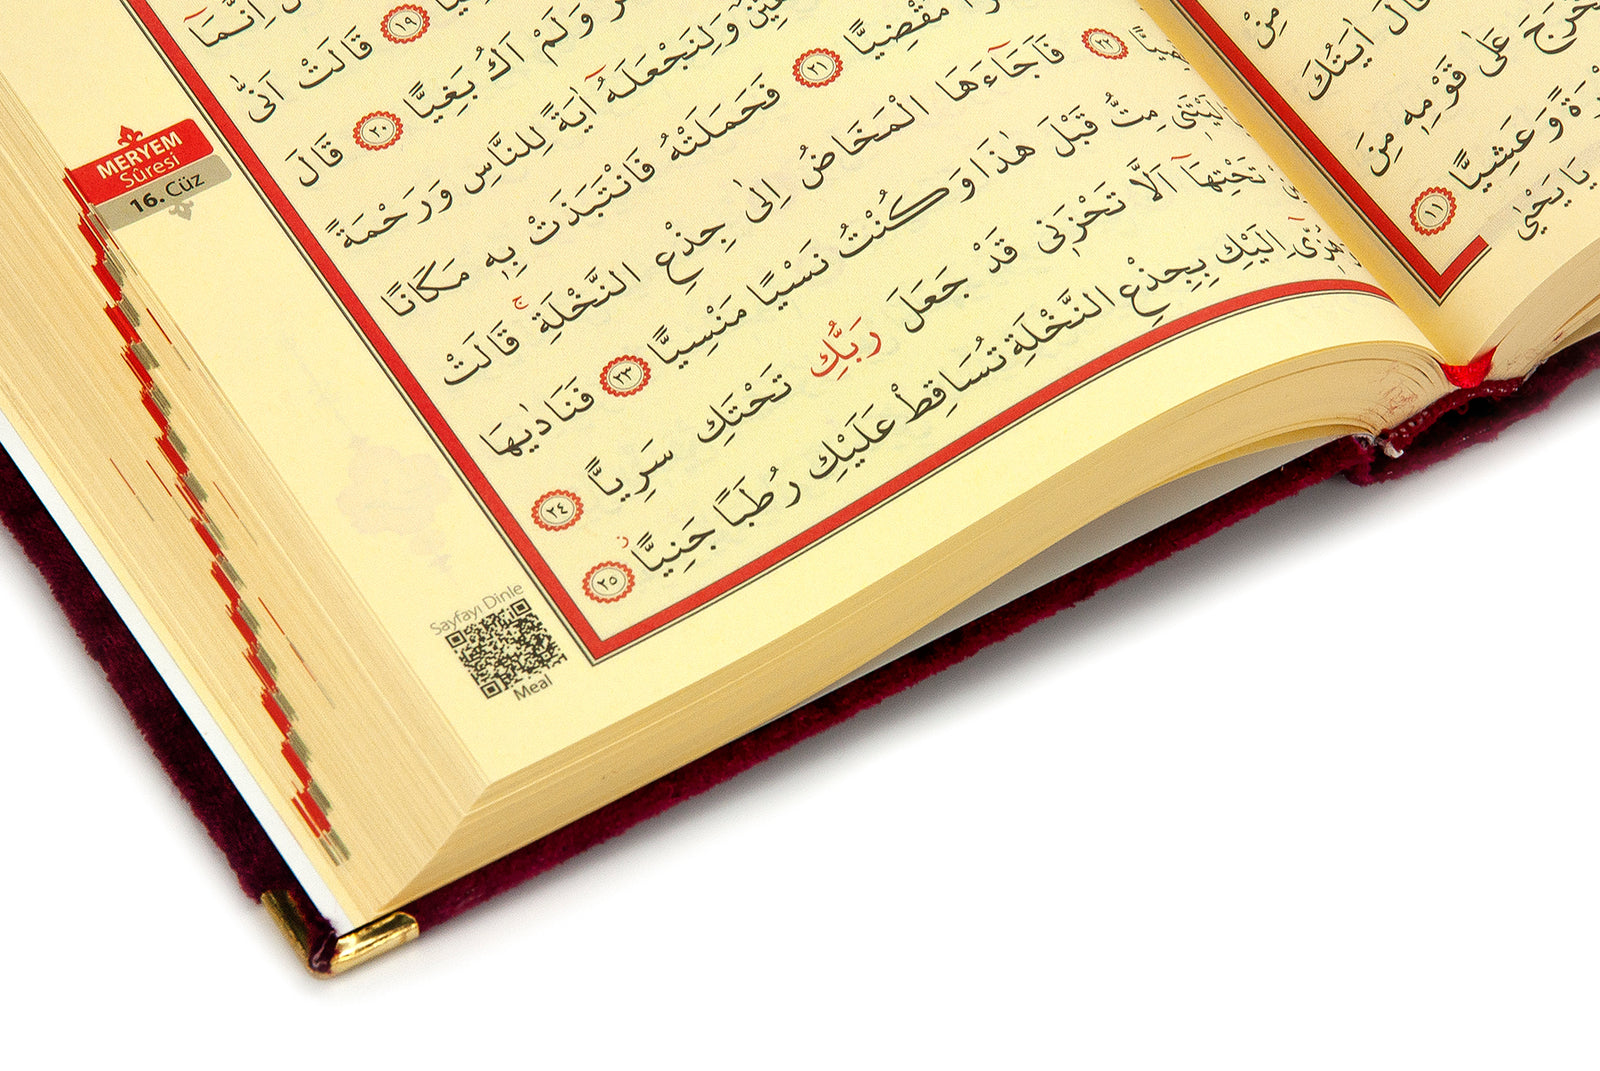 اِنَّمَٓا
﴿١٩﴾ قَالَتْ اَنّٰى
وَلَمْ اَكُ بَغِيًّا ﴿٢٠﴾ قَالَ
وَلِنَجْعَلَهُٓ اٰيَةً لِلنَّاسِ وَرَحْمَةً
مَقْضِيًّا ﴿٢١﴾ فَحَمَلَتْهُ فَانْتَبَذَتْ بِهٖ مَكَانًا
﴿٢٢﴾ فَاَجَٓاءَهَا الْمَخَاضُ اِلٰى جِذْعِ النَّخْلَةِۚ قَالَتْ
مِتُّ قَبْلَ هٰذَا وَكُنْتُ نَسْيًا مَنْسِيًّا ﴿٢٣﴾ فَنَادٰيهَا
تَحْتِهَٓا اَلَّا تَحْزَنٖى قَدْ جَعَلَ رَبُّكِ تَحْتَكِ سَرِيًّا ﴿٢٤﴾
اِلَيْكِ بِجِذْعِ النَّخْلَةِ تُسَاقِطْ عَلَيْكِ رُطَبًا جَنِيًّاۘ ﴿٢٥﴾
MERYEM
Sûresi
16. Cüz
Sayfayı Dinle
Meal
مِنْ
قَالَ اٰيَتُكَ
عَلٰى قَوْمِهٖ مِنَ
وَعَشِيًّا ﴿١١﴾
يَا يَحْيٰى